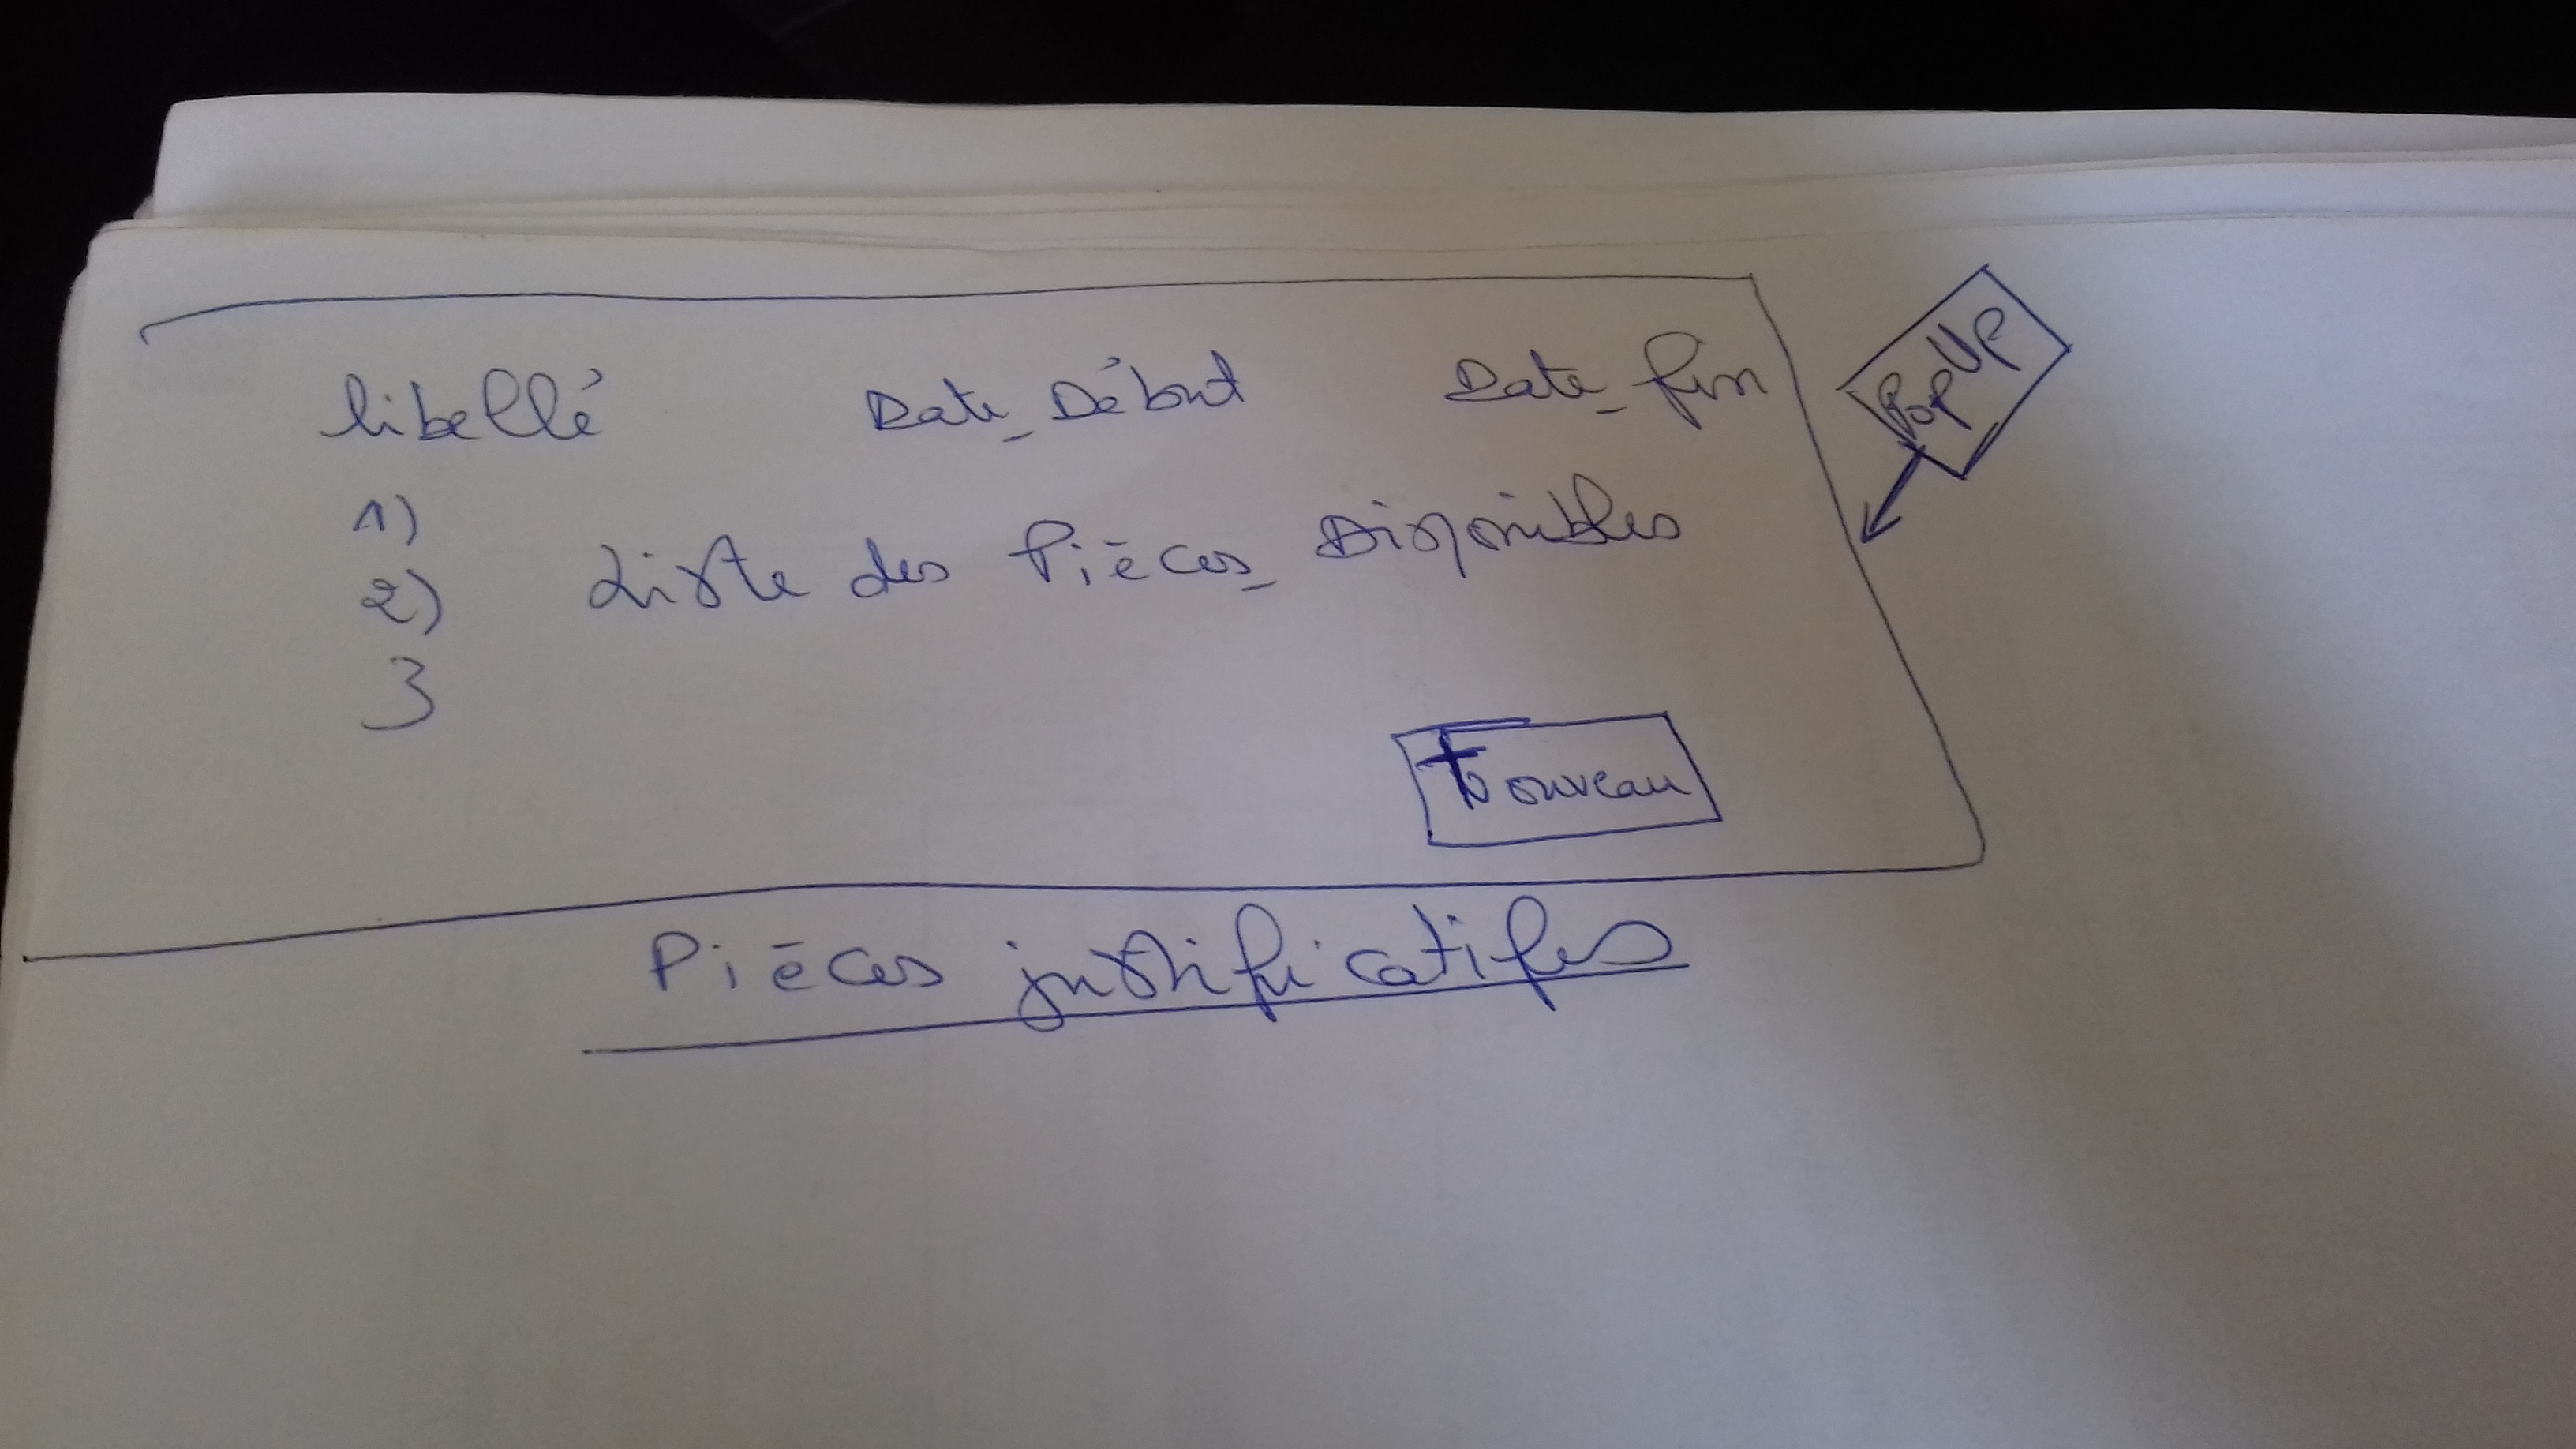 libellé Date_Début Date_fin
PopUP
1)
2) Liste des Pièces_Disponibles
3
+ Nouveau
Pièces justificatifes